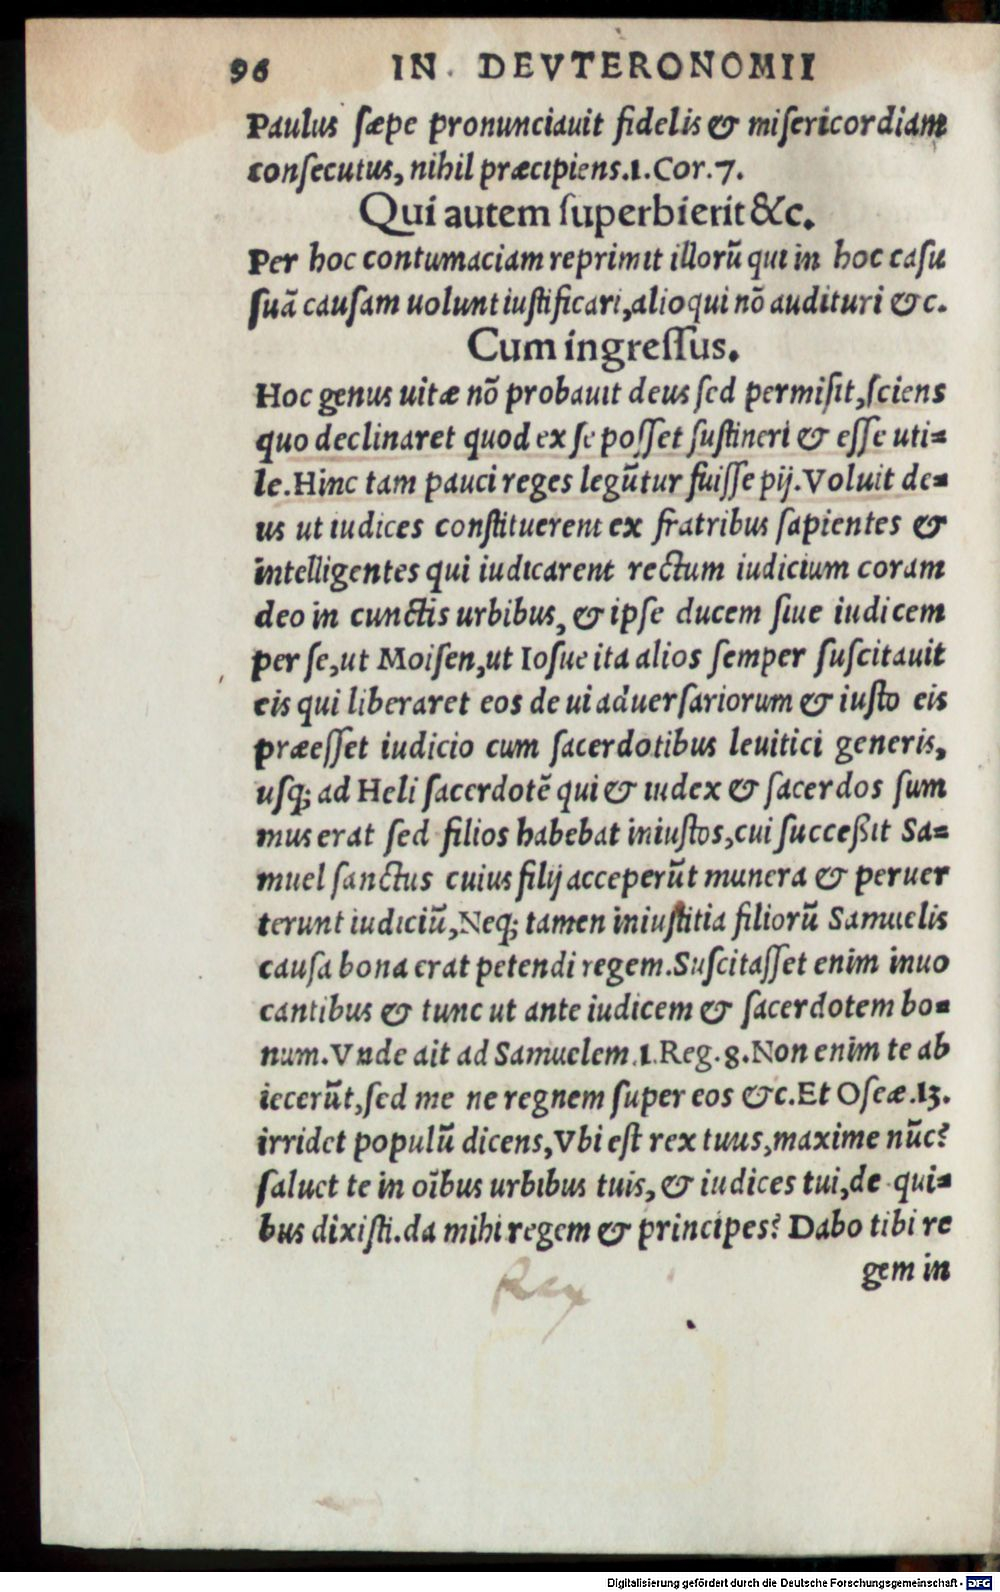 96 IN DEVTERONOMII
Paulus sæpe pronunciauit fidelis & misericordiam
consecutus, nihil præcipiens.1.Cor.7.
Qui autem superbierit &c.
Per hoc contumaciam reprimit illorū qui in hoc casu
suā causam uolunt iustificari, alioqui nō audituri &c.
Cum ingressus.
Hoc genus uitæ nō probauit deus sed permisit, sciens
quo declinaret quod ex se posset sustineri & esse uti=
le. Hinc tam pauci reges legūtur fuisse pij. Voluit de=
us ut iudices constituerent ex fratribus sapientes &
intelligentes qui iudicarent rectum iudicium coram
deo in cunctis urbibus, & ipse ducem siue iudicem
per se, ut Moisen, ut Iosue ita alios semper suscitauit
eis qui liberaret eos de ui aduersariorum & iusto eis
præesset iudicio cum sacerdotibus leuitici generis,
usq; ad Heli sacerdotē qui & iudex & sacerdos sum
mus erat sed filios habebat iniustos, cui succeßit Sa=
muel sanctus cuius filij acceperūt munera & peruer
terunt iudiciū, Neq; tamen iniustitia filiorū Samuelis
causa bona erat petendi regem. Suscitasset enim inuo
cantibus & tunc ut ante iudicem & sacerdotem bo=
num. Vnde ait ad Samuelem 1.Reg.8. Non enim te ab
iecerūt, sed me ne regnem super eos &c. Et Oseæ.13.
irridet populū dicens, Vbi est rex tuus, maxime nūc?
saluet te in oībus urbibus tuis, & iudices tui, de qui=
bus dixisti. da mihi regem & principes? Dabo tibi re
gem in
Rex
Digitalisierung gefördert durch die Deutsche Forschungsgemeinschaft - DFG